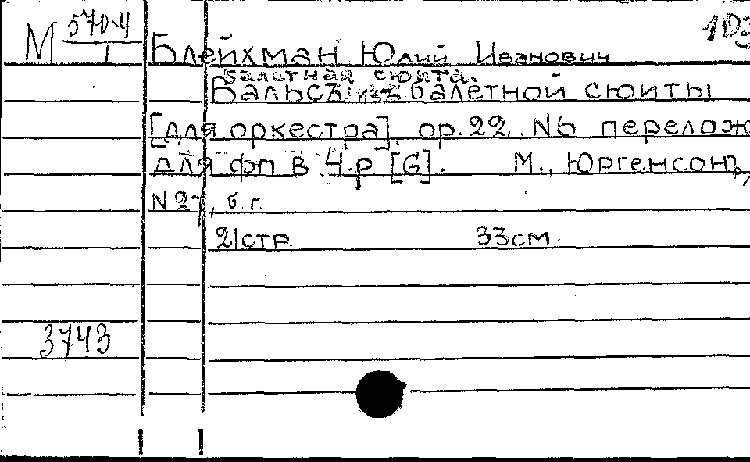 М 570-4
I
103
Блейхман Юлий Иванович
Балетная сюита.
Вальсъ из балетной сюиты
[для оркестра]. ор.22. №6 перелож
для фп в 4.р [G]. М., Юргенсонъ,
N 27, б.г.
21стр 33см
3743